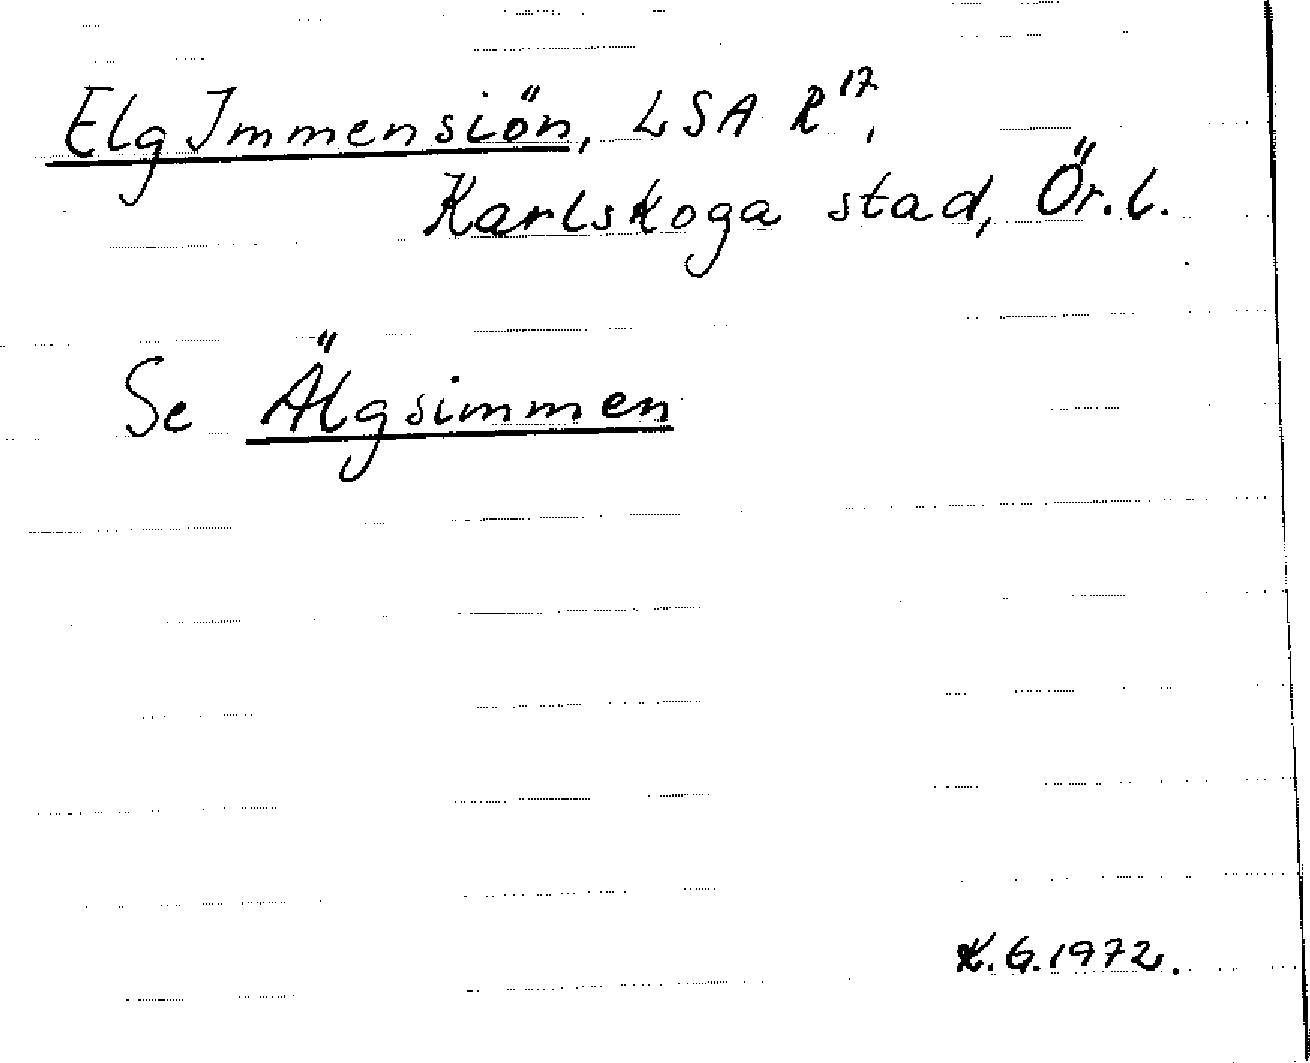 Elg Immensiön, LSA R¹⁷,
Karlskoga stad, Ör. l.
Se Älgsimmen
K. G. 1972.